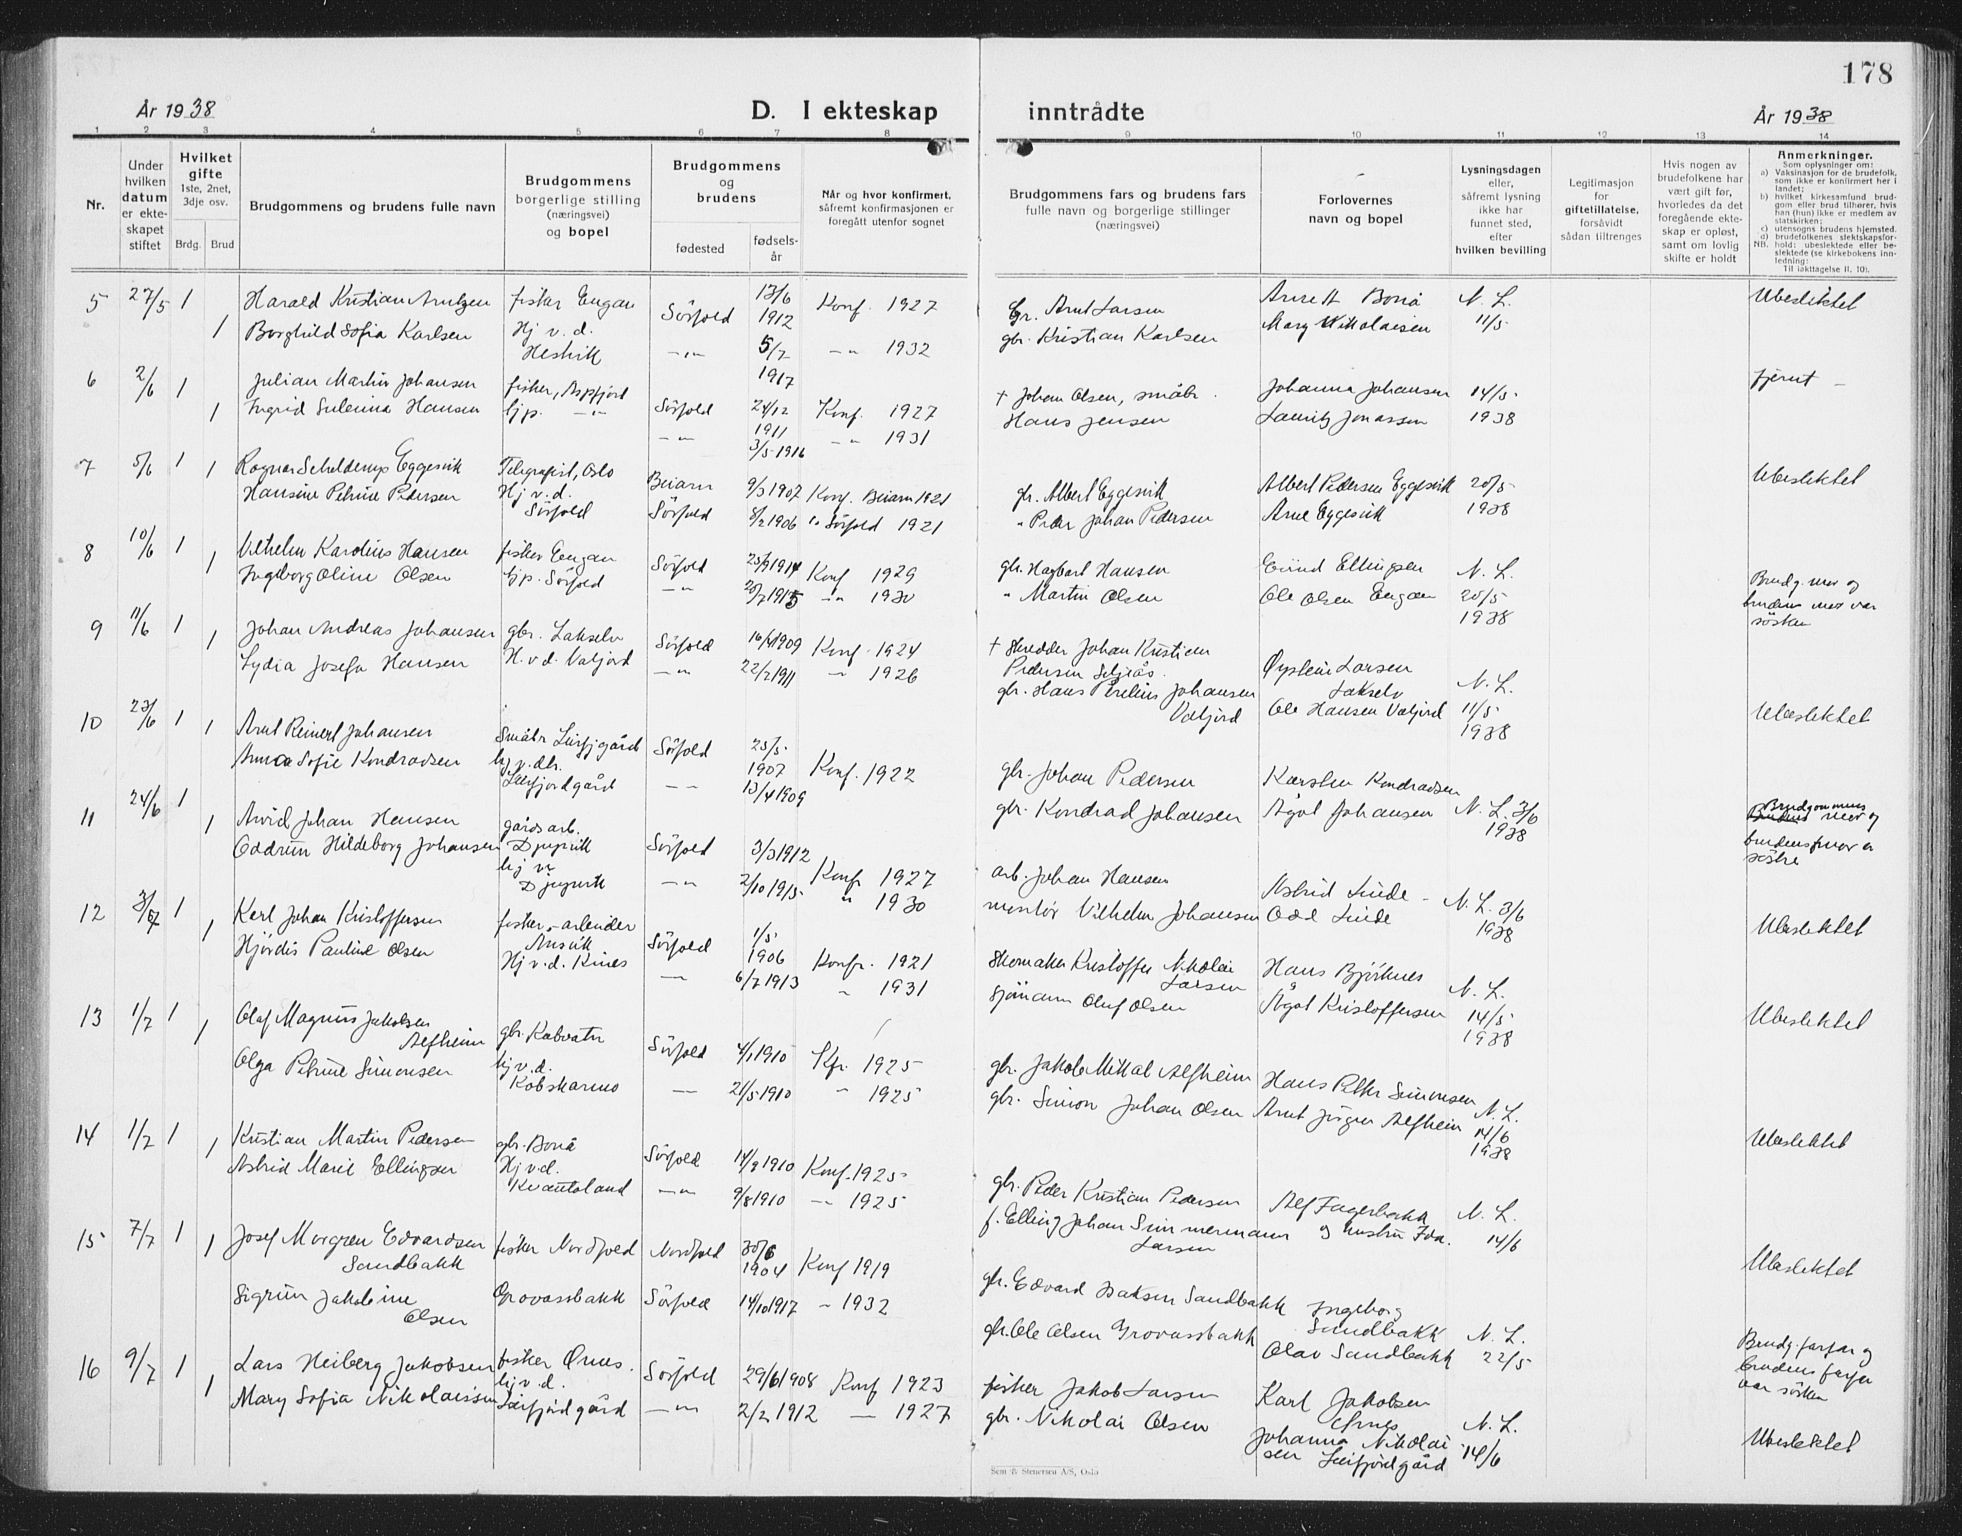 178
År 1938 D. I ekteskap inntrådte År 1938
1 2 3 4 5 6 7 8 9 10 11 12 13 14
Nr.
Under hvilken datum er ekteskapet stiftet
Hvilket gifte
1ste, 2net, 3dje osv.
Brdg. Brud
Brudgommens og brudens fulle navn
Brudgommens borgerlige stilling (næringsvei) og bopel
Brudgommens og brudens
fødested
fødsels-år
Når og hvor konfirmert, såfremt konfirmasjonen er foregått utenfor sognet
Brudgommens fars og brudens fars
fulle navn og borgerlige stillinger
(næringsvei)
Forlovernes navn og bopel
Lysningsdagen eller, såfremt lysning ikke har funnet sted, efter hvilken bevilling
Legitimasjon for giftetillatelse, forsåvidt sådan tiltrenges
Hvis nogen av brudefolkene har vært gift før, hvorledes da det foregående ekteskap er opløst, samt om lovlig skifte er holdt
Anmerkninger.
Som oplysninger om:
a) Vaksinasjon for de brudefolk, som ikke er konfirmert her i landet;
b) hvilket kirkesamfund brudgom eller brud tilhører, hvis han (hun) ikke er medlem av statskirken;
c) utensogns brudens hjemsted.
d) brudefolkenes slektskapsforhold: ubeslektede eller beslektede (se kirkebokens innledning:
NB.
Til iakttagelse II, 10).
5 27/5 1 Harald Kristian Arntzen fisker Engan Sörfold 13/6 1912 Konf. 1927 gr. Arnt Larsen Anne H Bonå N. L. Ubeslektet
1 Borghild Sofia Karlsen Hj v. d. Hestvik -"- 5/7 1917 -"- 1932 gbr. Kristian Karlsen Mary Nikolaisen 11/5
6 2/6 1 Julian Martin Johansen fisker, Aspfjord Sörfold 24/12 1911 Konf. 1927 + Johan Olsen, småbr. Johanna Johansen 14/5 fjernt
1 Ingrid Sulenna Hansen hjp. -"- -"- 3/5 1916 -"- 1931 Hans Jensen Lauritz Jonassen 1938
7 5/6 1 Ragnar Schelderup Eggesvik Telegrafist, Oslo Beiarn 9/3 1907 Konf. Beiarn 1921 gb. Albert Eggesvik Albert Pedersen Eggesvik 20/5 Ubeslektet
1 Hansine Petrine Pedersen Hj v. d. Sörfold Sörfold 8/2 1906 " Sörfold 1921 " Peder Johan Pedersen Arne Eggesvik 1938
8 10/6 1 Vilhelm Karolius Hansen fisker Engan Sörfold 25/9 1914 Konf 1929 gbr. Hagbart Hansen Eivind Ellingsen N. L. Brudg. mor og
1 Ingeborg Oline Olsen hjp. Sörfold -"- 20/7 1915 -"- 1930 " Martin Olsen Ole Olsen Engan 20/5 1938 brudens mor var søsken
9 11/6 1 Johan Andreas Johansen gbr. Lakselv Sörfold 16/4 1909 Konf. 1924 + Skredder Johan Kristian Pedersen Øystein Larsen Lakselv N. L.
1 Lydia Josefa Hansen H. v. d. Valjord -"- 22/2 1911 " 1926 gb. Hans Johansen Valjord Ole Hansen Valjord 11/5 1938
10 23/6 1 Arnt Reinert Johansen Småbr. Sörfold 25/5 1907 Konf. 1922 gbr. Johan Pedersen Karsten Kondradsen Ubeslektet
1 Anna Sofie Kondradsen hj. v. dr. Leirfjordgård -"- 13/4 1909 gbr. Kondrad Johansen Ågot Johansen N. L. 3/6 1938
11 24/6 1 Arvid Johan Hansen gårdsarb. Djupvik Sörfold 3/3 1912 Konf. 1927 arb. Johan Hansen Astrid Linde N. L. 3/6 Brudgommens mor og
1 Oddrun Hildeborg Johansen hj v. Djupvik -"- 2/10 1915 " 1930 montör Vilhelm Johansen Odd Linde 1938 brudens er søstre
12 1 Karl Johan Kristoffersen fisker-arbeider Ansvik Sörfold 1/5 1906 Konfr. 1921 Skomaker Kristoffer Nikolai Larsen Hans Björknes N. L. Ubeslektet
1 Hjördis Pauline Olsen Hj v. d. Kines -"- 6/7 1913 " 1931 Sjömann Oluf Olsen Ågot Kristoffersen 14/5 1938
13 1/7 1 Olaf Magnus Jakobsen Alfheim gbr. Kobvatn Sörfold 4/1 1910 Kfr. 1925 gbr. Jakob Mikal Alfheim Hans Petter Simonsen N. L. Ubeslektet
1 Olga Petrine Simonsen hj v. d. Kobskarmo -"- 21/5 1910 " 1925 gbr. Simon Johan Olsen Arnt Jörgen Alfheim 14/6 1938
14 1/7 1 Kristian Martin Pedersen gbr. Bonå Sörfold 14/9 1910 Konf. 1925 gbr. Peder Kristian Pedersen Alf Fagerbakk N. L. Ubeslektet
1 Astrid Marie Ellingsen Hj v. d. Kvantoland -"- 9/8 1910 -"- 1925 f. Elling Johan Larsen og hustru Ida. 14/6
15 7/7 1 Josef Morgan Edvardsen Sandbakk fisker Nordfold Nordfold 30/6 1904 Konf 1919 gbr. Edvard Isaksen Sandbakk Ingeborg Sandbakk N. L. Ubeslektet
1 Sigrun Jakobine Olsen Grovassbakk Sörfold 14/10 1917 " 1932 gbr. Ole Olsen Grovassbakk Olav Sandbakk 22/5
16 9/7 1 Lars Heiberg Jakobsen fisker Ørnes. Sörfold 29/6 1908 Konf 1923 fisker Jakob Larsen Karl Jakobsen Ørnes N. L. Brudg. farfar og brudens farfar var søsken
1 Mary Sofia Nikolaissen hj v. d. Leirfjordgård -"- 2/2 1912 — 1927 gbr. Nikolai Olsen Johanna Nikolaisen Leirfjordgård 14/6 Ubeslektet
Sem & Stenersen A/S, Oslo